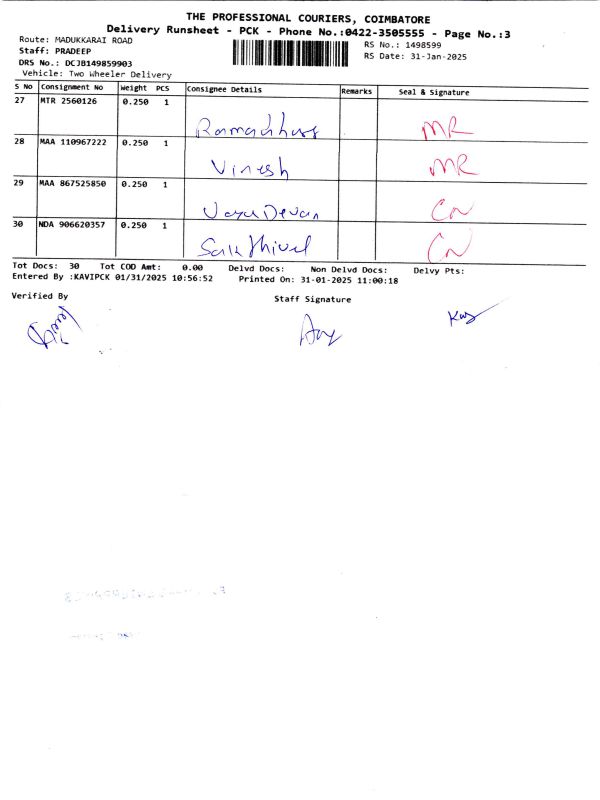 THE PROFESSIONAL COURIERS, COIMBATORE
Delivery Runsheet - PCK - Phone No.:0422-3505555 - Page No.:3
Route: MADUKKARAI ROAD
RS No.: 1498599
Staff: PRADEEP
RS Date: 31-Jan-2025
DRS No.: DCJB149859903
Vehicle: Two Wheeler Delivery
S No Consignment No Weight PCS Consignee Details Remarks Seal & Signature
27 MTR 2560126 0.250 1 MR
28 MAA 110967222 0.250 1 Vinesh MR
29 MAA 867525850 0.250 1 CN
30 NDA 906620357 0.250 1 CN
Tot Docs: 30 Tot COD Amt: 0.00 Delvd Docs: Non Delvd Docs: Delvy Pts:
Entered By :KAVIPCK 01/31/2025 10:56:52 Printed On: 31-01-2025 11:00:18
Verified By
Staff Signature